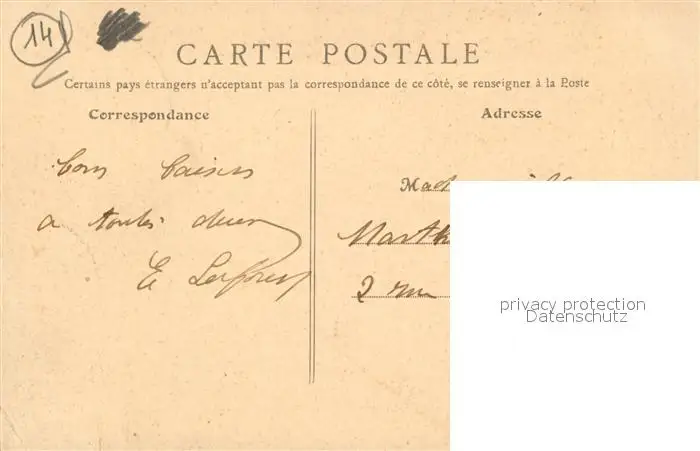 14
CARTE POSTALE
Certains pays étrangers n'acceptent pas la correspondance de ce côté, se renseigner à la Poste
Correspondance
Adresse
bons baisers
a toutes deux
E
Mad
Marth
2 rue
privacy protection
Datenschutz